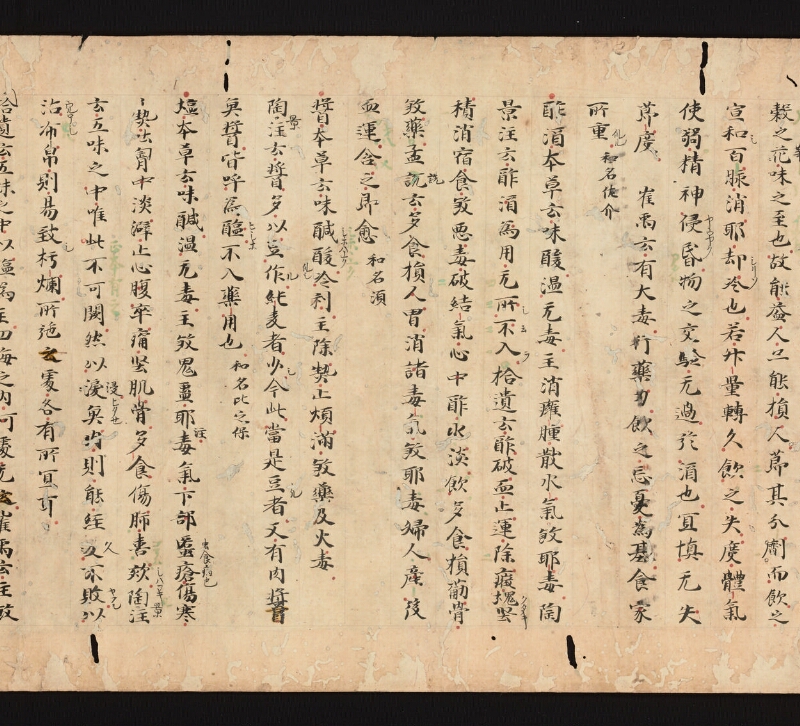 穀之花味之至也故能益人亦能損人節其分劑而飲之
宣和百脉消耶却冷也若升量轉久飲之失度體氣
使弱精神侵昏物之交驗无過於酒也宜慎无失
節度 崔禹云有大毒行藥勢飲之忌憂為基食家
所重 和名佐介
酢酒本草云味酸温无毒主消癰腫散水氣煞耶毒陶
景注云酢酒為用无所不入拾遺云酢破血止運除癥塊堅
積消宿食煞悪毒破結氣心中酢水淡飲多食損筋骨
煞藥孟詵云多食損人胃消諸毒氣煞耶毒婦人産後
血運含之即愈 和名須
醤本草云味醎酸冷利主除熱止煩満煞藥及火毒
陶景注云醤多以豆作純麦者少今此當是豆者又有肉醤
魚醤皆呼為醢不入藥用也 和名比之保
塩本草云味醎温无毒主煞鬼蠱耶注毒氣下部䘌瘡傷寒
熱吐胷中淡澼止心腹卒痛堅肌骨多食傷肺喜欬陶景注
云五味之中唯此不可闕然以浸魚肉則能經久不敗以
沾布帛則易致朽爛所施之處各有所宜耳
拾遺云五味之中以塩為主四海之内何處无之崔禹云主煞